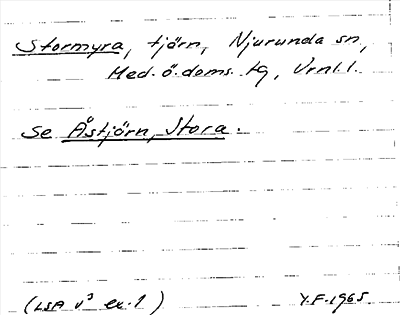 Stormyra, tjärn, Njurunda sn,
Med. ö. doms. tg, Vrnl. l.
Se Åstjärn, Stora.
(LSA v³ ex. 1) Y.F. 1965